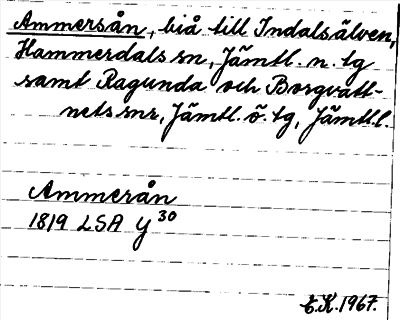 Ammersån, biå till Indalsälven,
Hammerdals sn, Jämtl. n. tg
samt Ragunda och Borgvatt-
nets snr, Jämtl. ö. tg, Jämtl.l.
Ammerån
1819 LSA y 30
E.K. 1967.